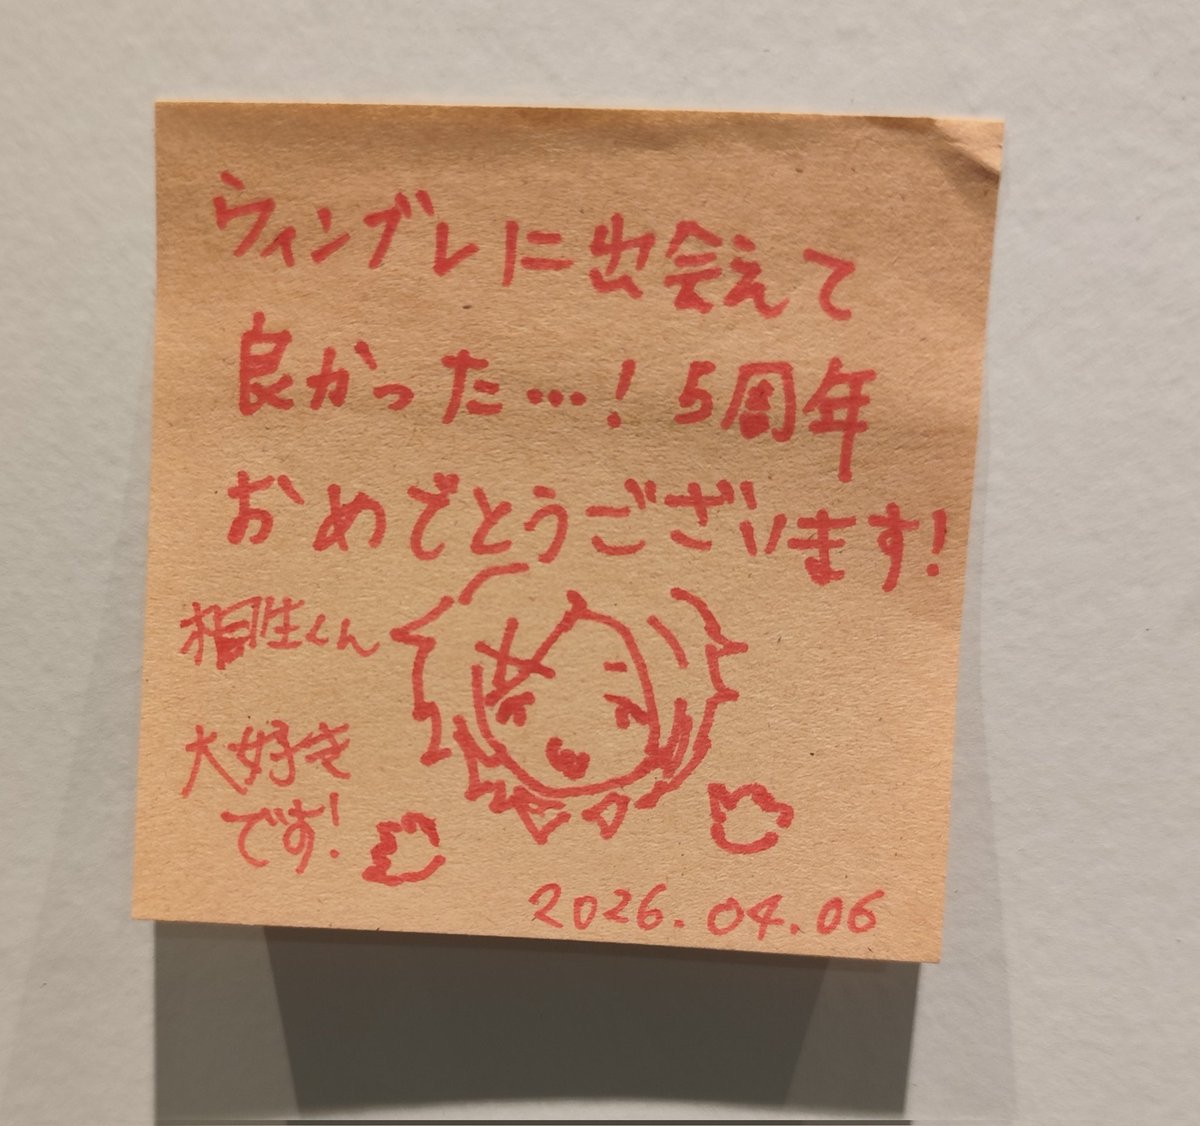 ウィンブレに出会えて
良かった…！5周年
おめでとうございます！
相生くん
大好き
です！
2026.04.06